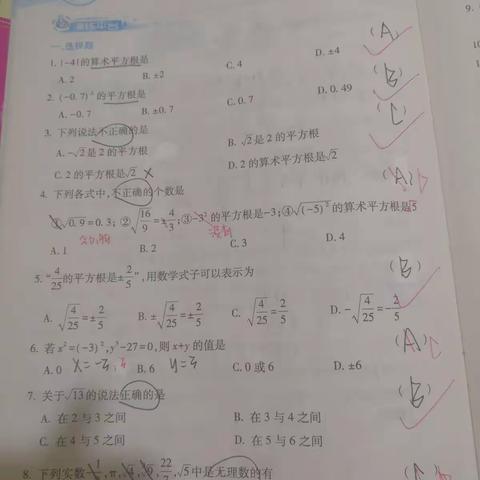 一、选择题
1. |-4|的算术平方根是 (A)
A. 2 B. ±2 C. 4 D. ±4
2. (-0.7)²的平方根是 (B)
A. -0.7 B. ±0.7 C. 0.7 D. 0.49
3. 下列说法不正确的是 (C)
A. -√2是2的平方根 B. √2是2的平方根
C. 2的平方根是√2 × D. 2的算术平方根是√2
4. 下列各式中,不正确的个数是 (A)
①√0.9=0.3; ②√(16/9)=±4/3; ③-3²的平方根是-3; ④√(-5)²的算术平方根是√5
没有
A. 1 B. 2 C. 3 D. 4
5. “4/25的平方根是±2/5”,用数学式子可以表示为 (B)
A. √(4/25)=±2/5 B. ±√(4/25)=±2/5 C. √(4/25)=2/5 D. -√(4/25)=-2/5
6. 若x²=(-3)²,y³-27=0,则x+y的值是 (A) C
A. 0 x=-3 B. 6 y=3 C. 0或6 D. ±6
7. 关于√13的说法正确的是 (B)
A. 在2与3之间 B. 在3与4之间
C. 在4与5之间 D. 在5与6之间
8. 下列实数 π, √4, √9, 22 √5中是无理数的有
9.
10